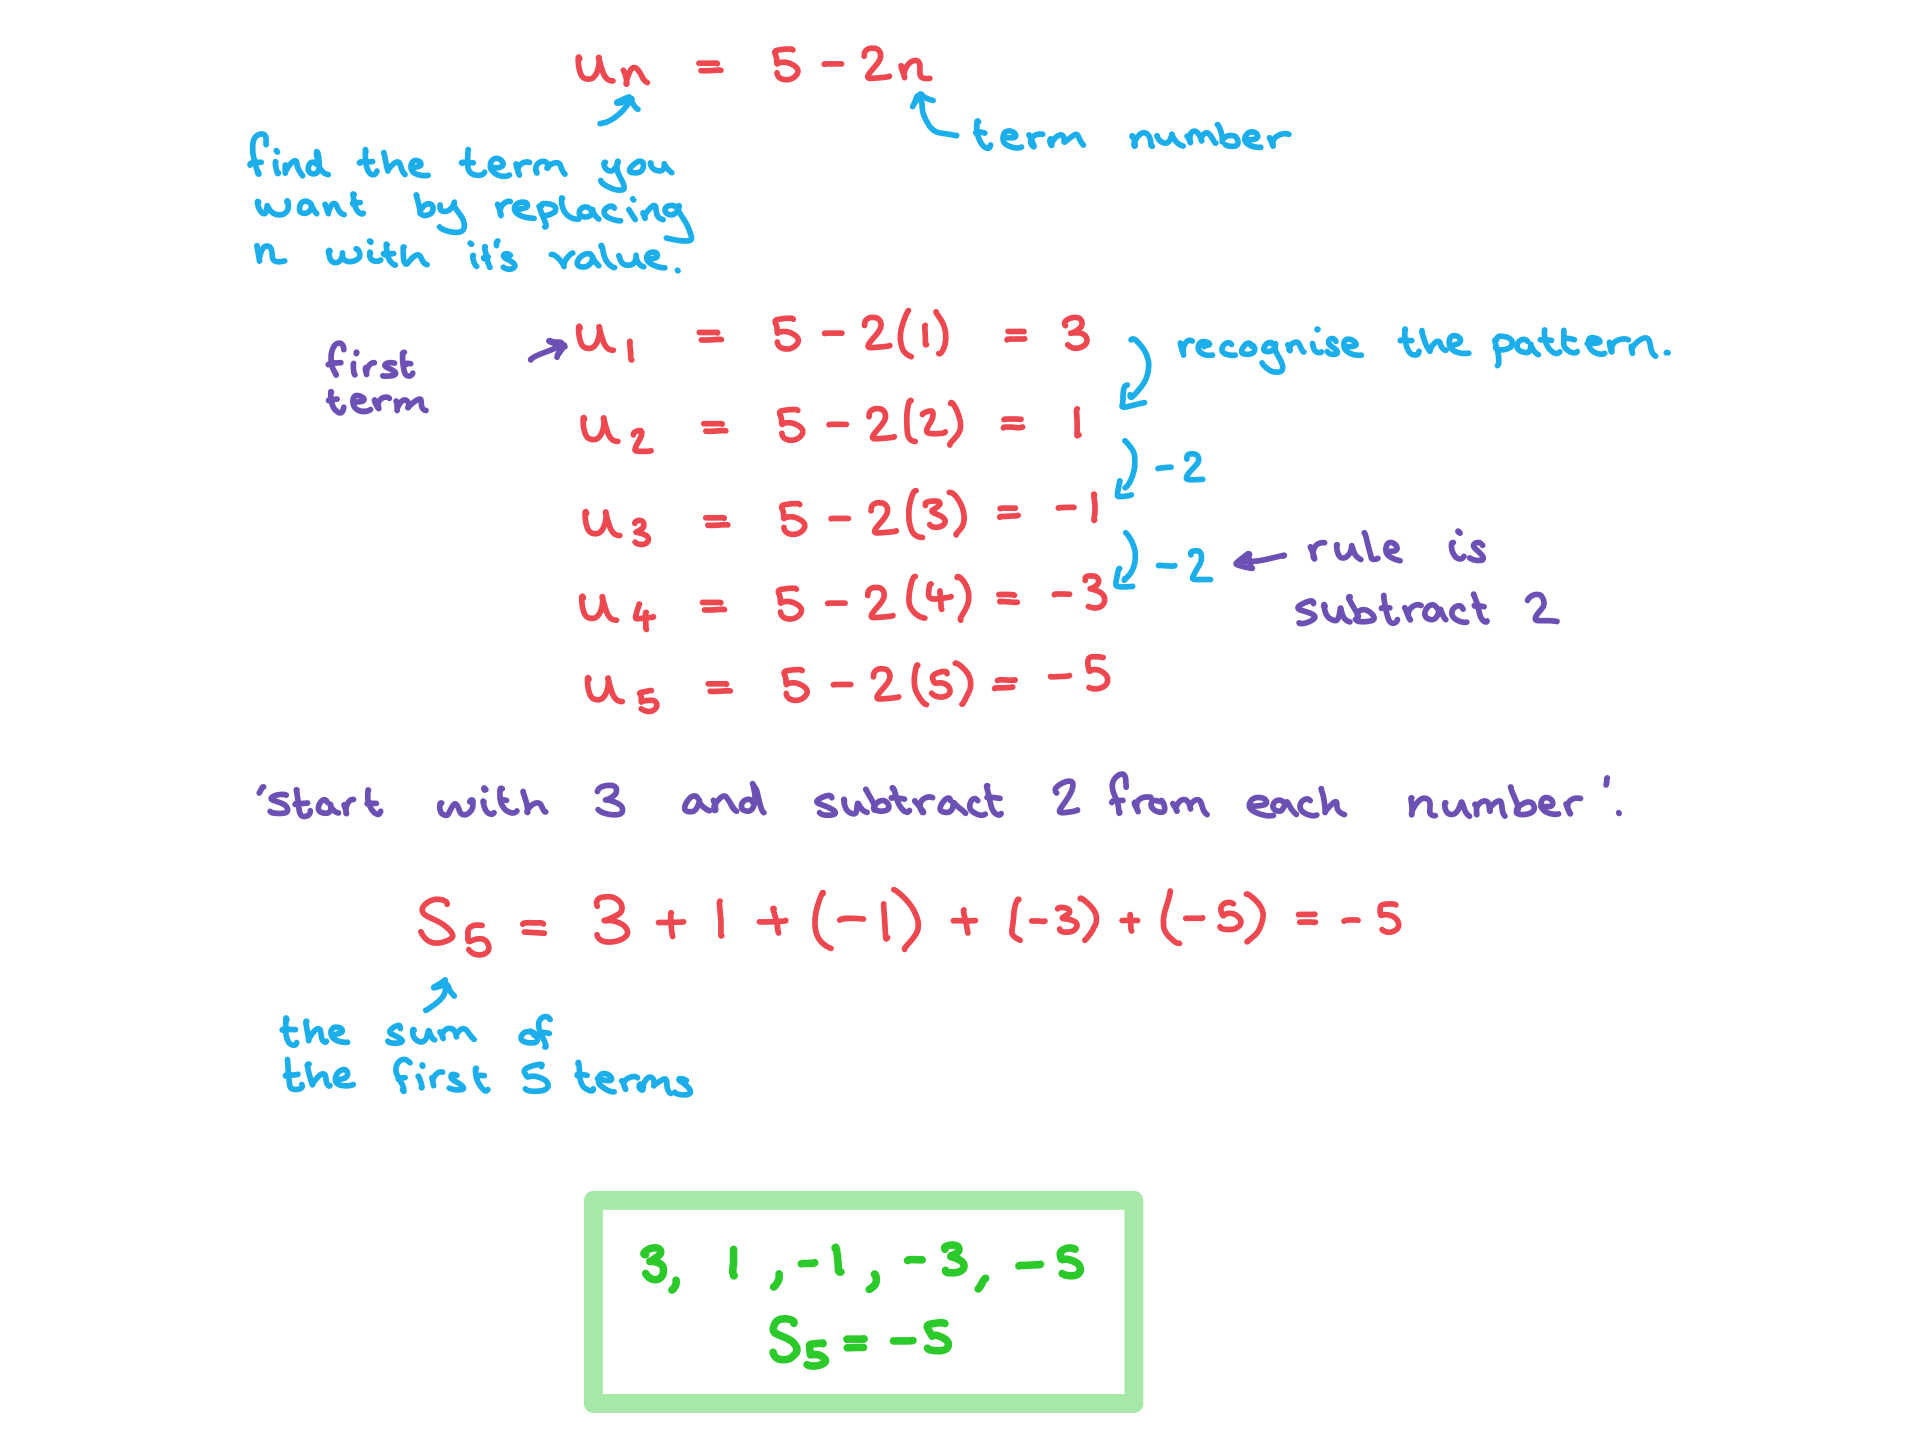 uₙ = 5 - 2n
term number
find the term you
want by replacing
n with it's value.
first
term
u₁ = 5 - 2(1) = 3
recognise the pattern.
u₂ = 5 - 2(2) = 1
-2
u₃ = 5 - 2(3) = -1
-2
rule is
subtract 2
u₄ = 5 - 2(4) = -3
u₅ = 5 - 2(5) = -5
'start with 3 and subtract 2 from each number'.
S₅ = 3 + 1 + (-1) + (-3) + (-5) = -5
the sum of
the first 5 terms
3, 1, -1, -3, -5
S₅ = -5